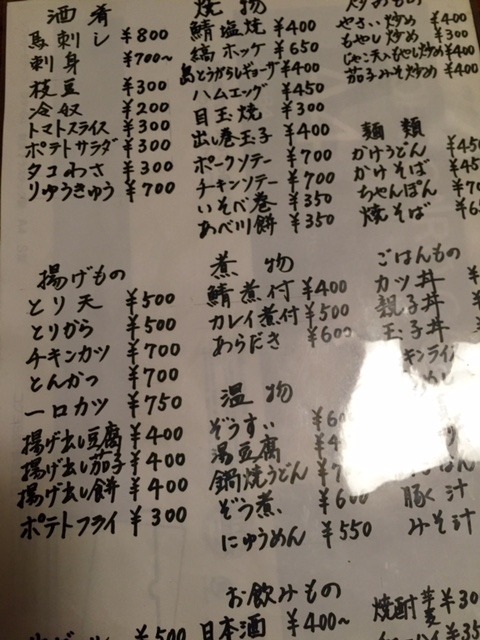 酒肴
馬刺し ¥800
刺身 ¥700~
枝豆 ¥300
冷奴 ¥200
トマトスライス ¥300
ポテトサラダ ¥300
タコわさ ¥300
りゅうきゅう ¥700
揚げもの
とり天 ¥500
とりから ¥500
チキンカツ ¥700
とんかつ ¥700
一口カツ ¥750
揚げ出し豆腐 ¥400
揚げ出し茄子 ¥400
揚げ出し餅 ¥400
ポテトフライ ¥300
¥500
焼物
鯖塩焼 ¥400
縞ホッケ ¥650
島とうがらしギョーザ ¥400
ハムエッグ ¥450
目玉焼 ¥300
出し巻玉子 ¥400
ポークソテー ¥700
チキンソテー ¥700
いそべ巻 ¥350
あべ川餅 ¥350
煮物
鯖煮付 ¥400
カレイ煮付 ¥500
あらだき ¥600
温物
ぞうすい ¥60
湯豆腐 ¥
鍋焼うどん ¥7
ぞう煮 ¥600
にゅうめん ¥550
お飲みもの
日本酒 ¥400~
炒めもの
やさい炒め ¥400
もやし炒め ¥300
じゃこ天入もやし炒め ¥400
茄子みそ炒め ¥400
麺類
かけうどん ¥450
かけそば ¥45
ちゃんぽん ¥70
焼そば ¥6
ごはんもの
カツ丼
親子丼
玉子丼
キンライ
豚汁
みそ汁
焼酎 芋 麦 ¥30